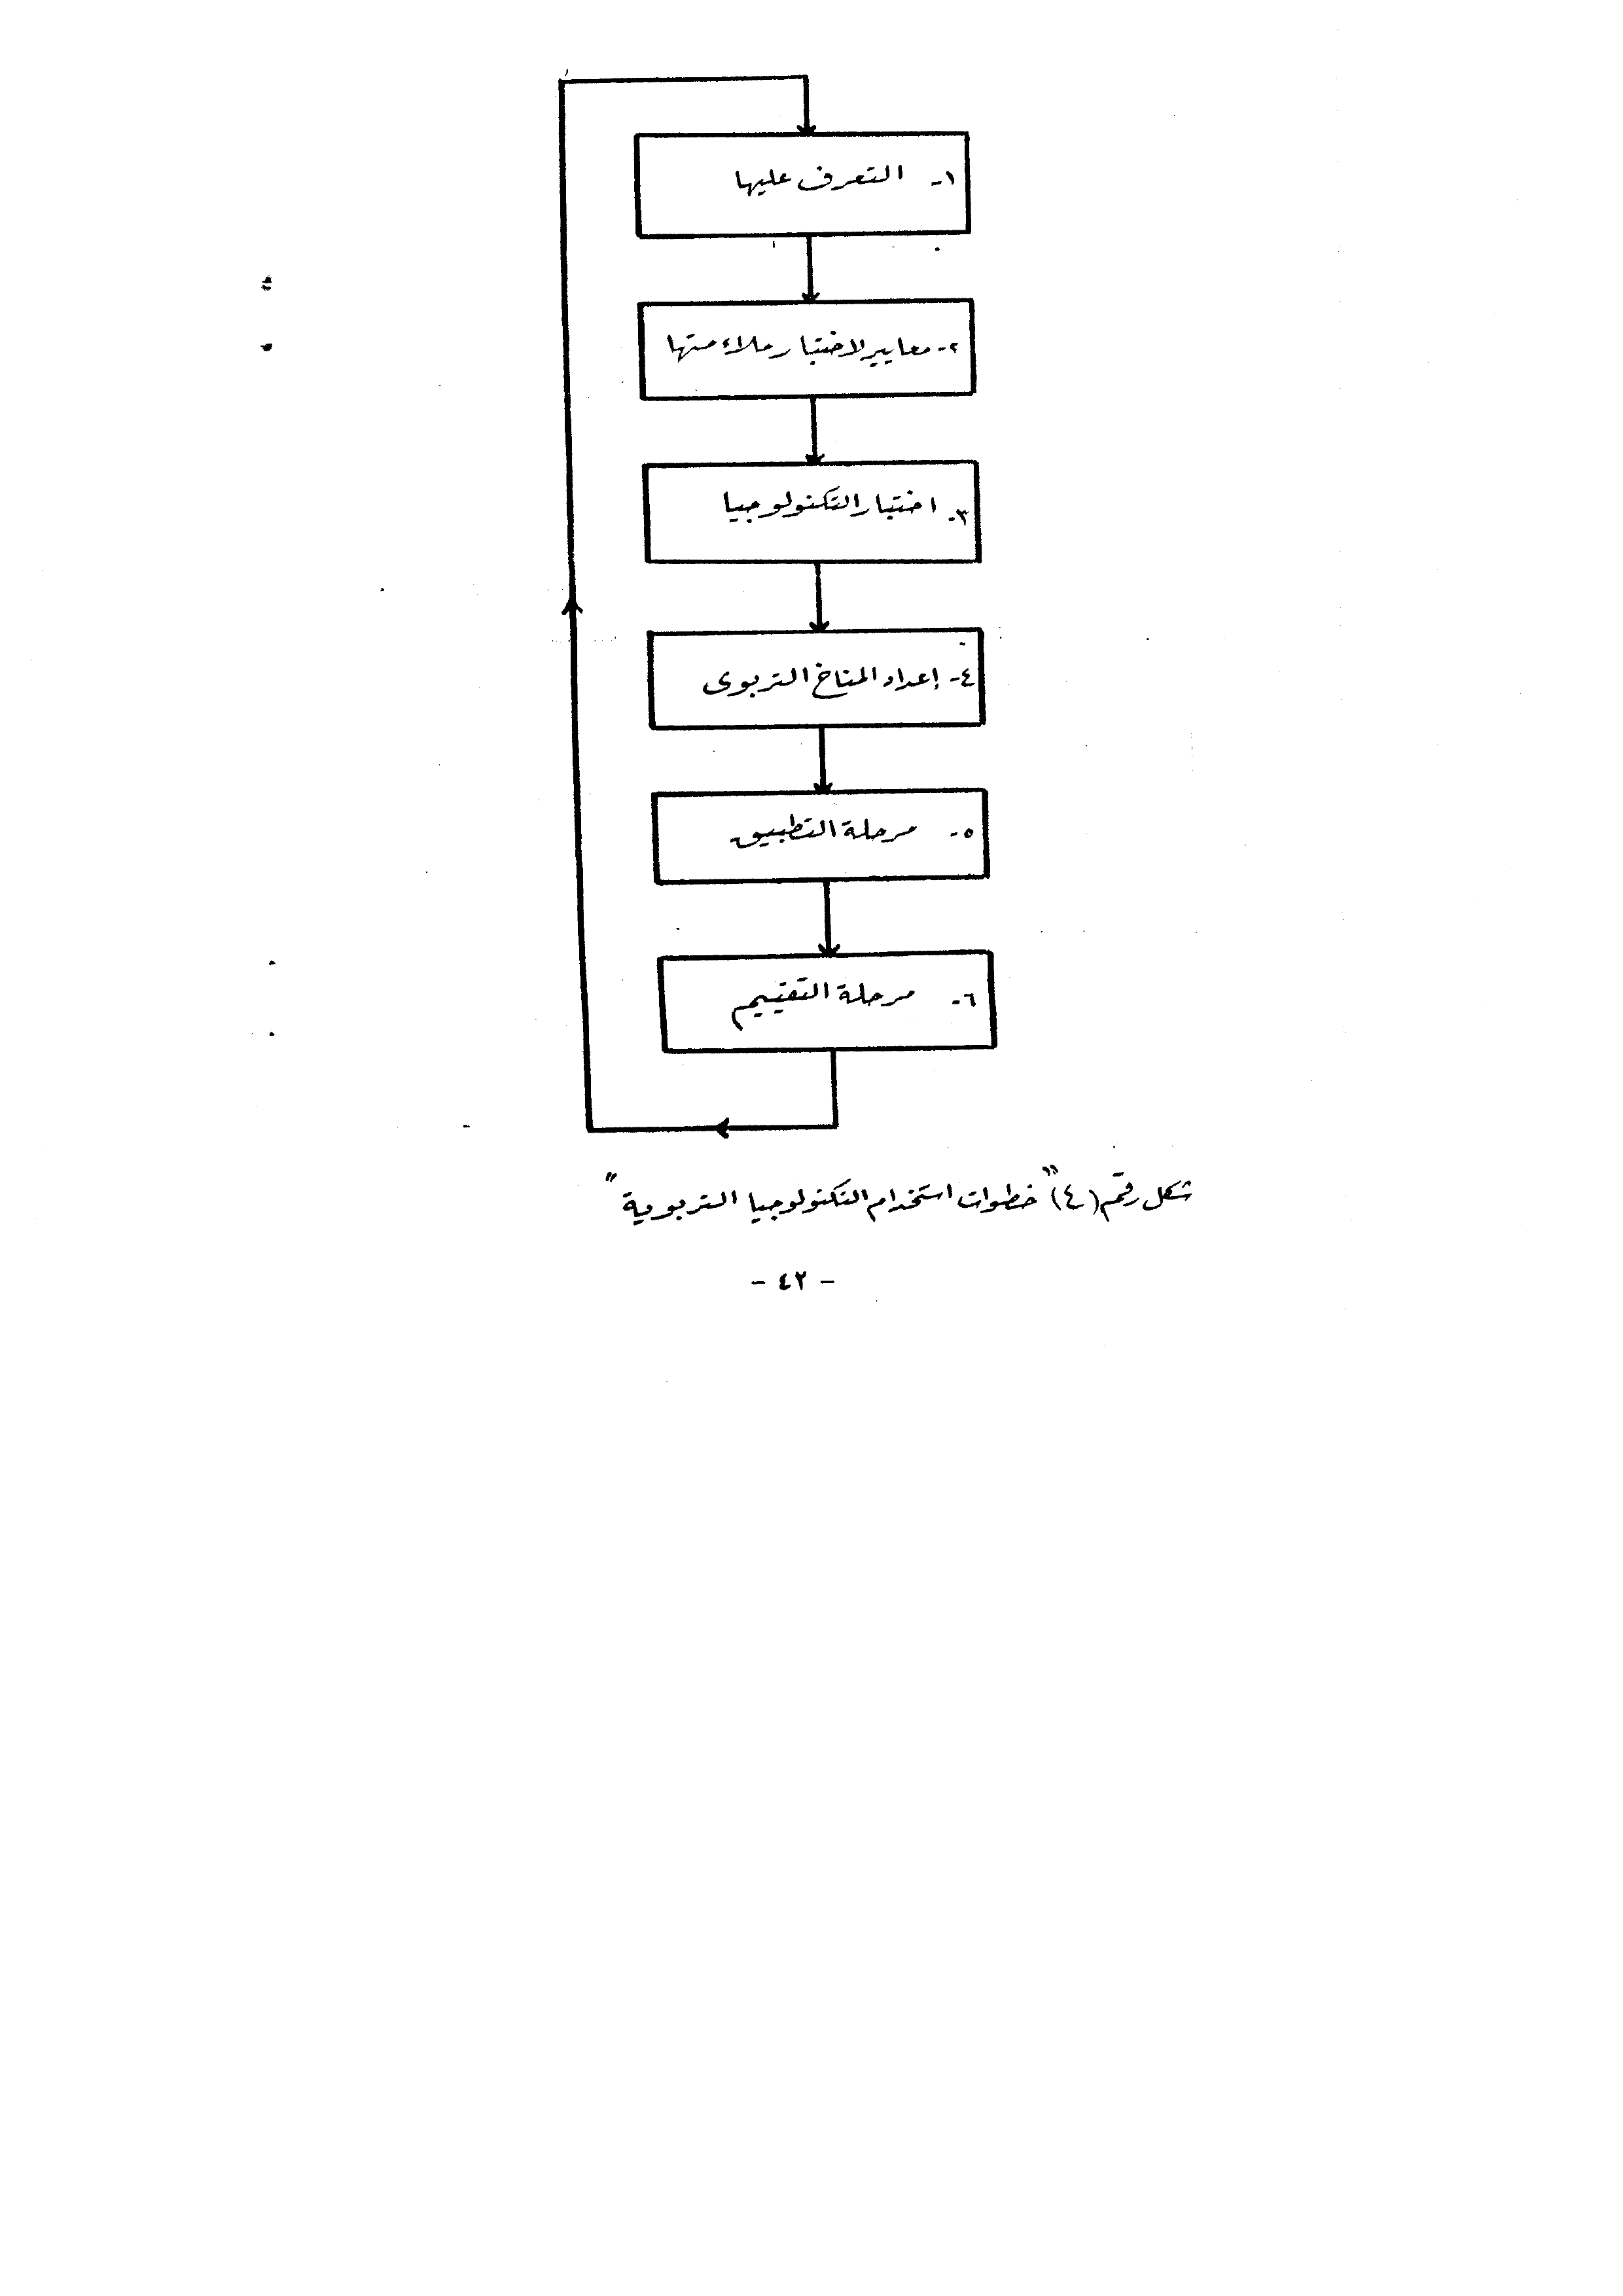 ١- التعرف عليها
٢- معايير لاختبار ملاءمتها
٣- اختبار التكنولوجيا
٤- إعداد المناخ التربوى
٥- مرحلة التطبيق
٦- مرحلة التقييم
شكل رقم (٤) "خطوات استخدام التكنولوجيا التربوية"
- ٤٢ -